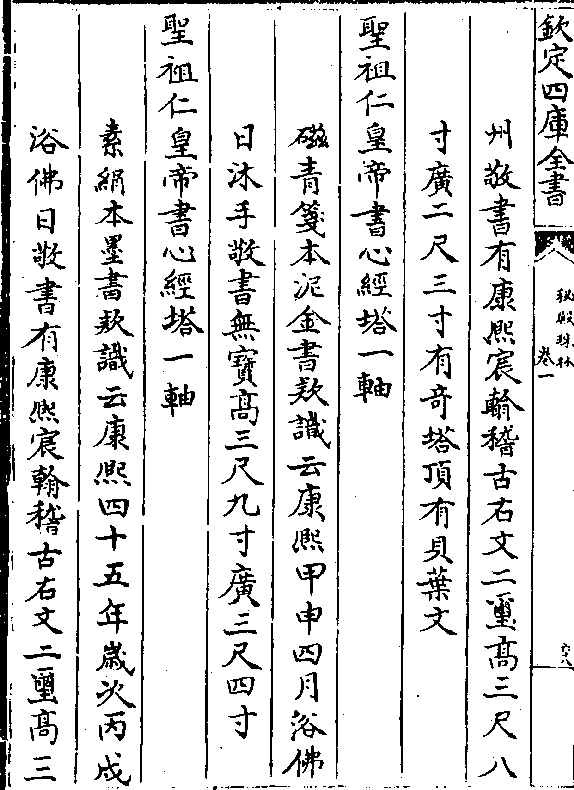 欽定四庫全書
秘殿珠林
卷一
六十八
州敬書有康熙宸翰稽古右文二璽高三尺八
寸廣二尺三寸有奇塔頂有貝葉文
聖祖仁皇帝書心經塔一軸
磁青箋本泥金書款識云康熙甲申四月浴佛
日沐手敬書無寶高三尺九寸廣三尺四寸
聖祖仁皇帝書心經塔一軸
素絹本墨書款識云康熙四十五年歲次丙戌
浴佛日敬書有康熙宸翰稽古右文二璽高三